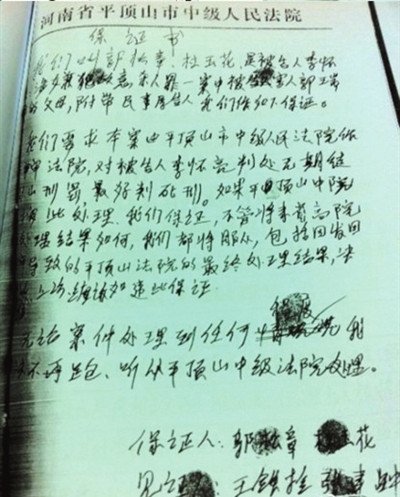 河南省平顶山市中级人民法院
保证书
我们叫郭松章、杜玉花，是被告人李怀
亮故意杀人罪一案中被害人郭
父母，附带民事原告人，我们作如下保证。
我们要求本案由平顶山市中级人民法院作
一审法院，对被告人李怀亮判处无期徒
刑以上刑罚，最好判死刑。如果平顶山中院
如此处理，我们保证，不管将来省高院
处理结果如何，我们都将服从，包括因发回
导致的平顶山法院的最终处理结果，决
不上访缠诉，如违此保证
无论案件处理到任何 我
们不再上访、听从平顶山中级法院处理。
保证人：郭松章 杜玉花
见证人：王铁拴